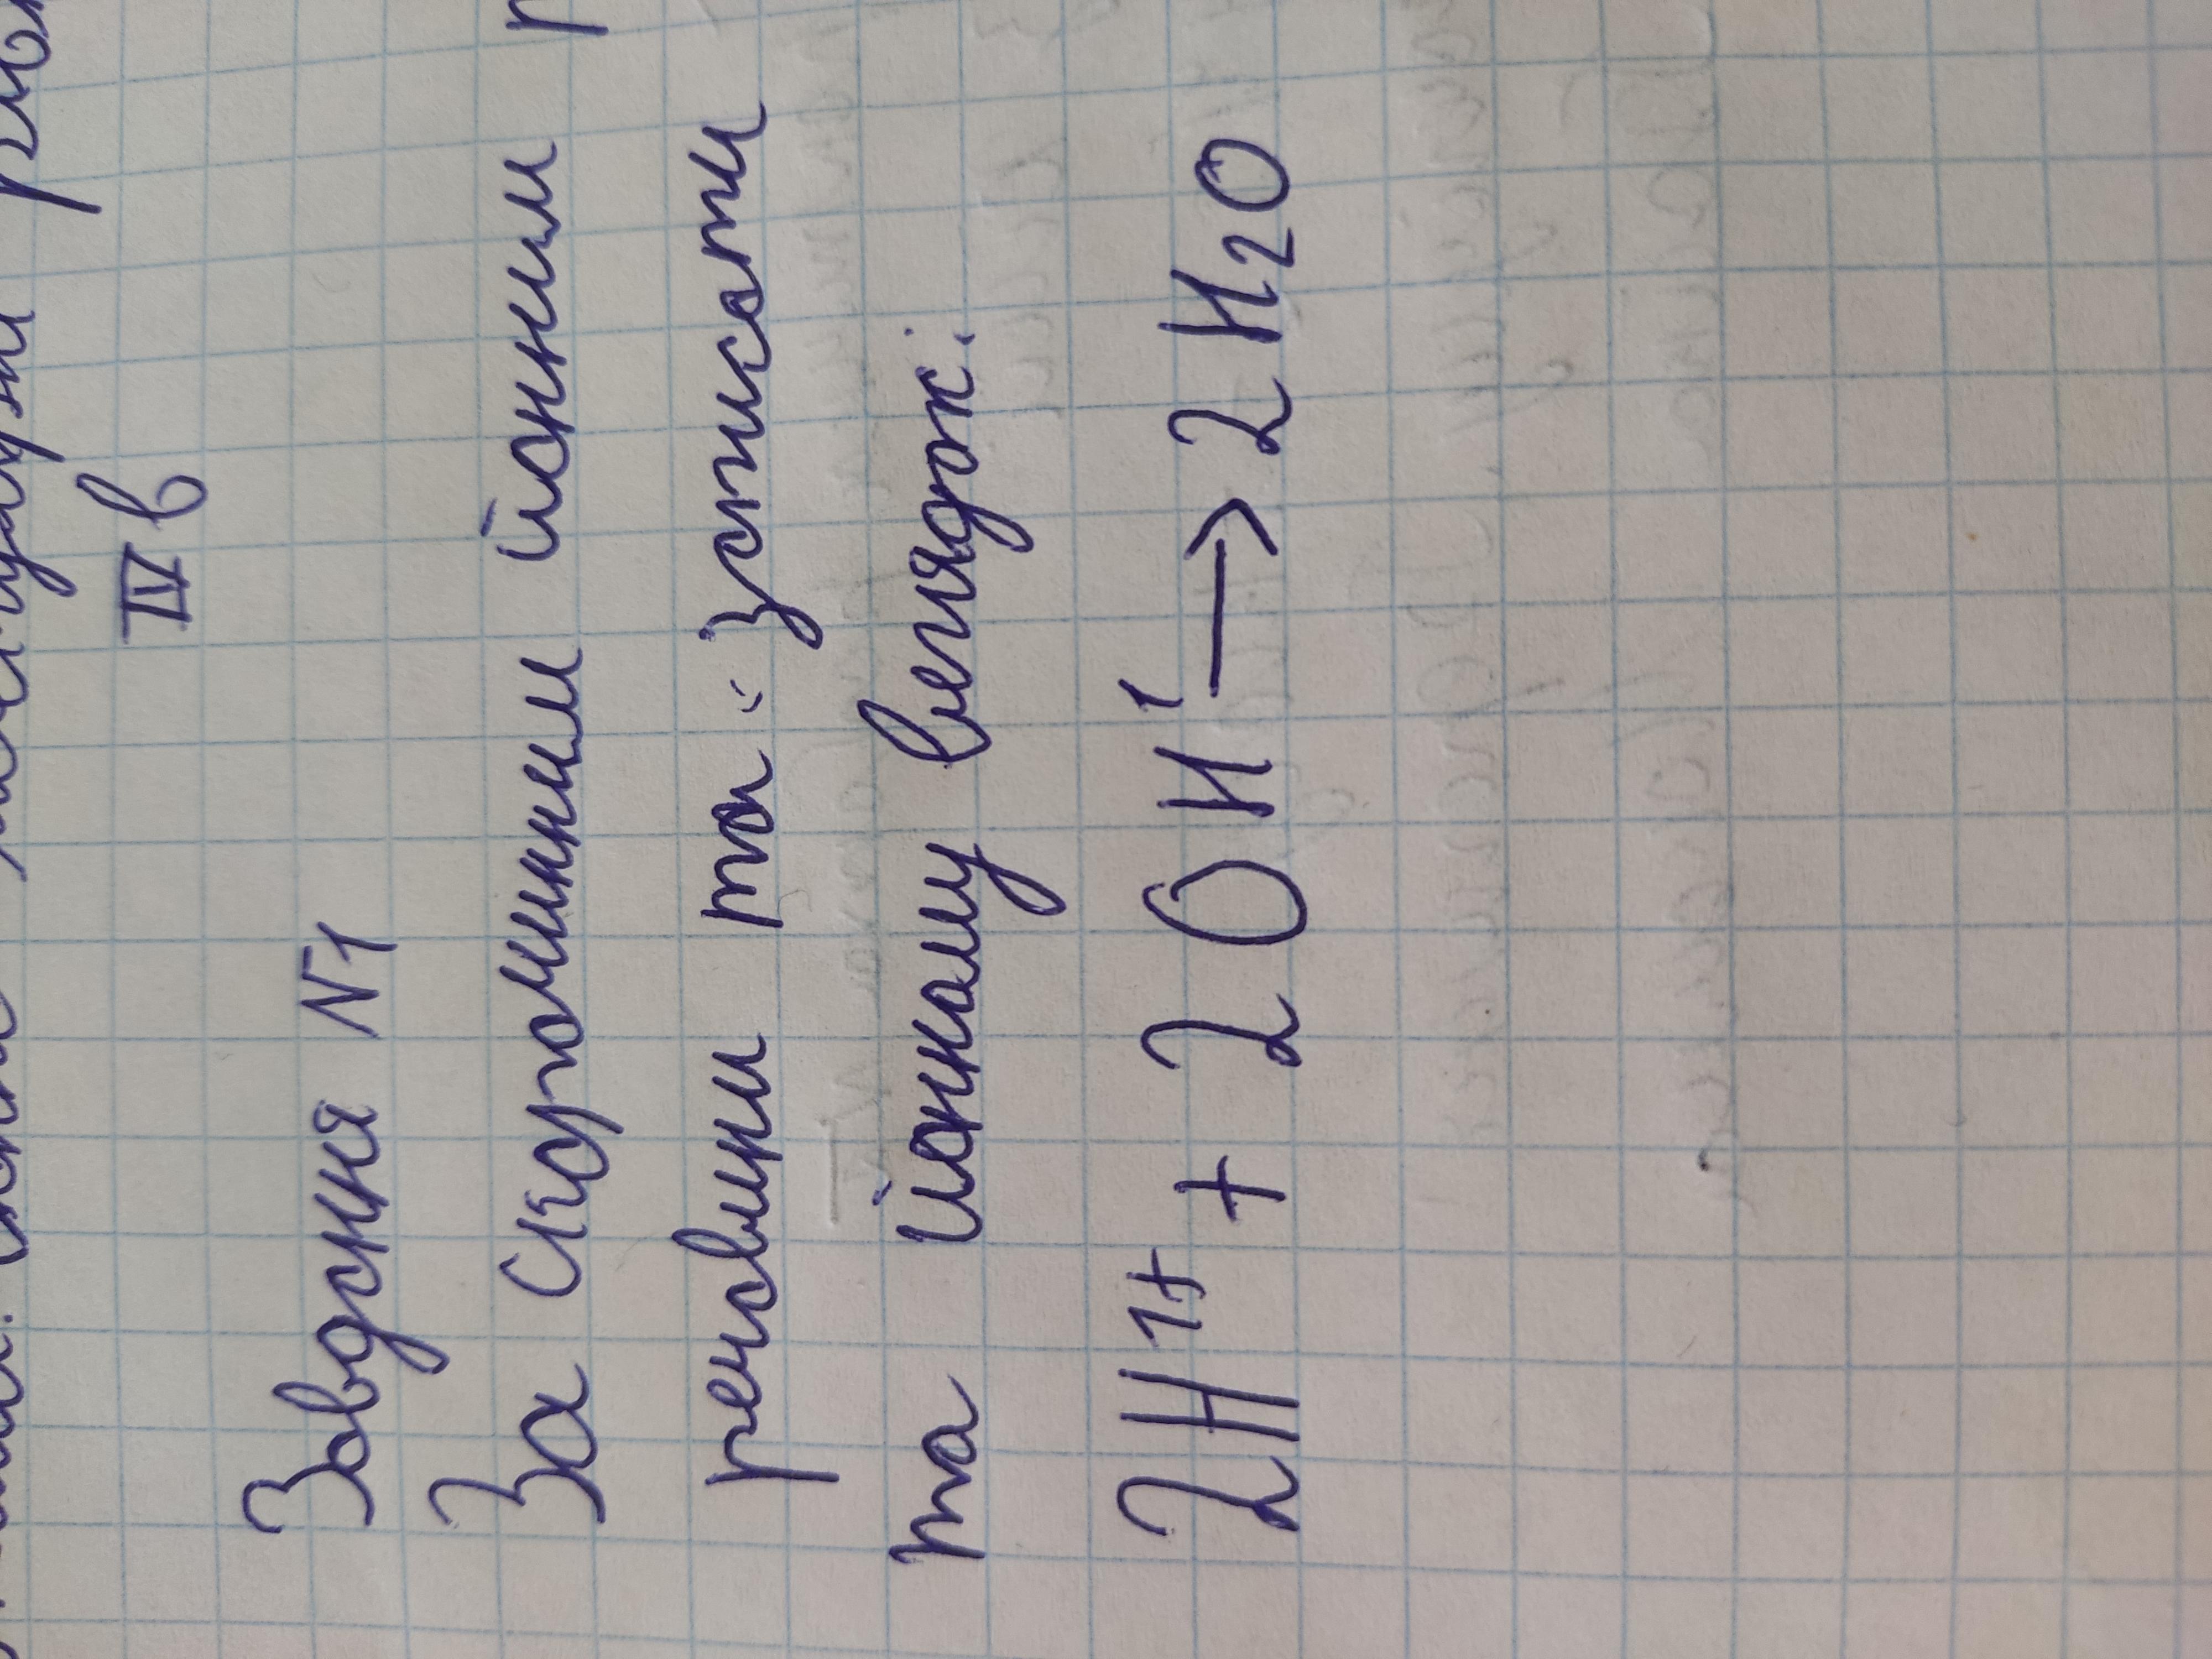 IV в
Завдання N1
За скороченним йонним
речовини та зописати
та йонному вигляді:
2H¹⁺ + 2OH¹ → 2H₂O